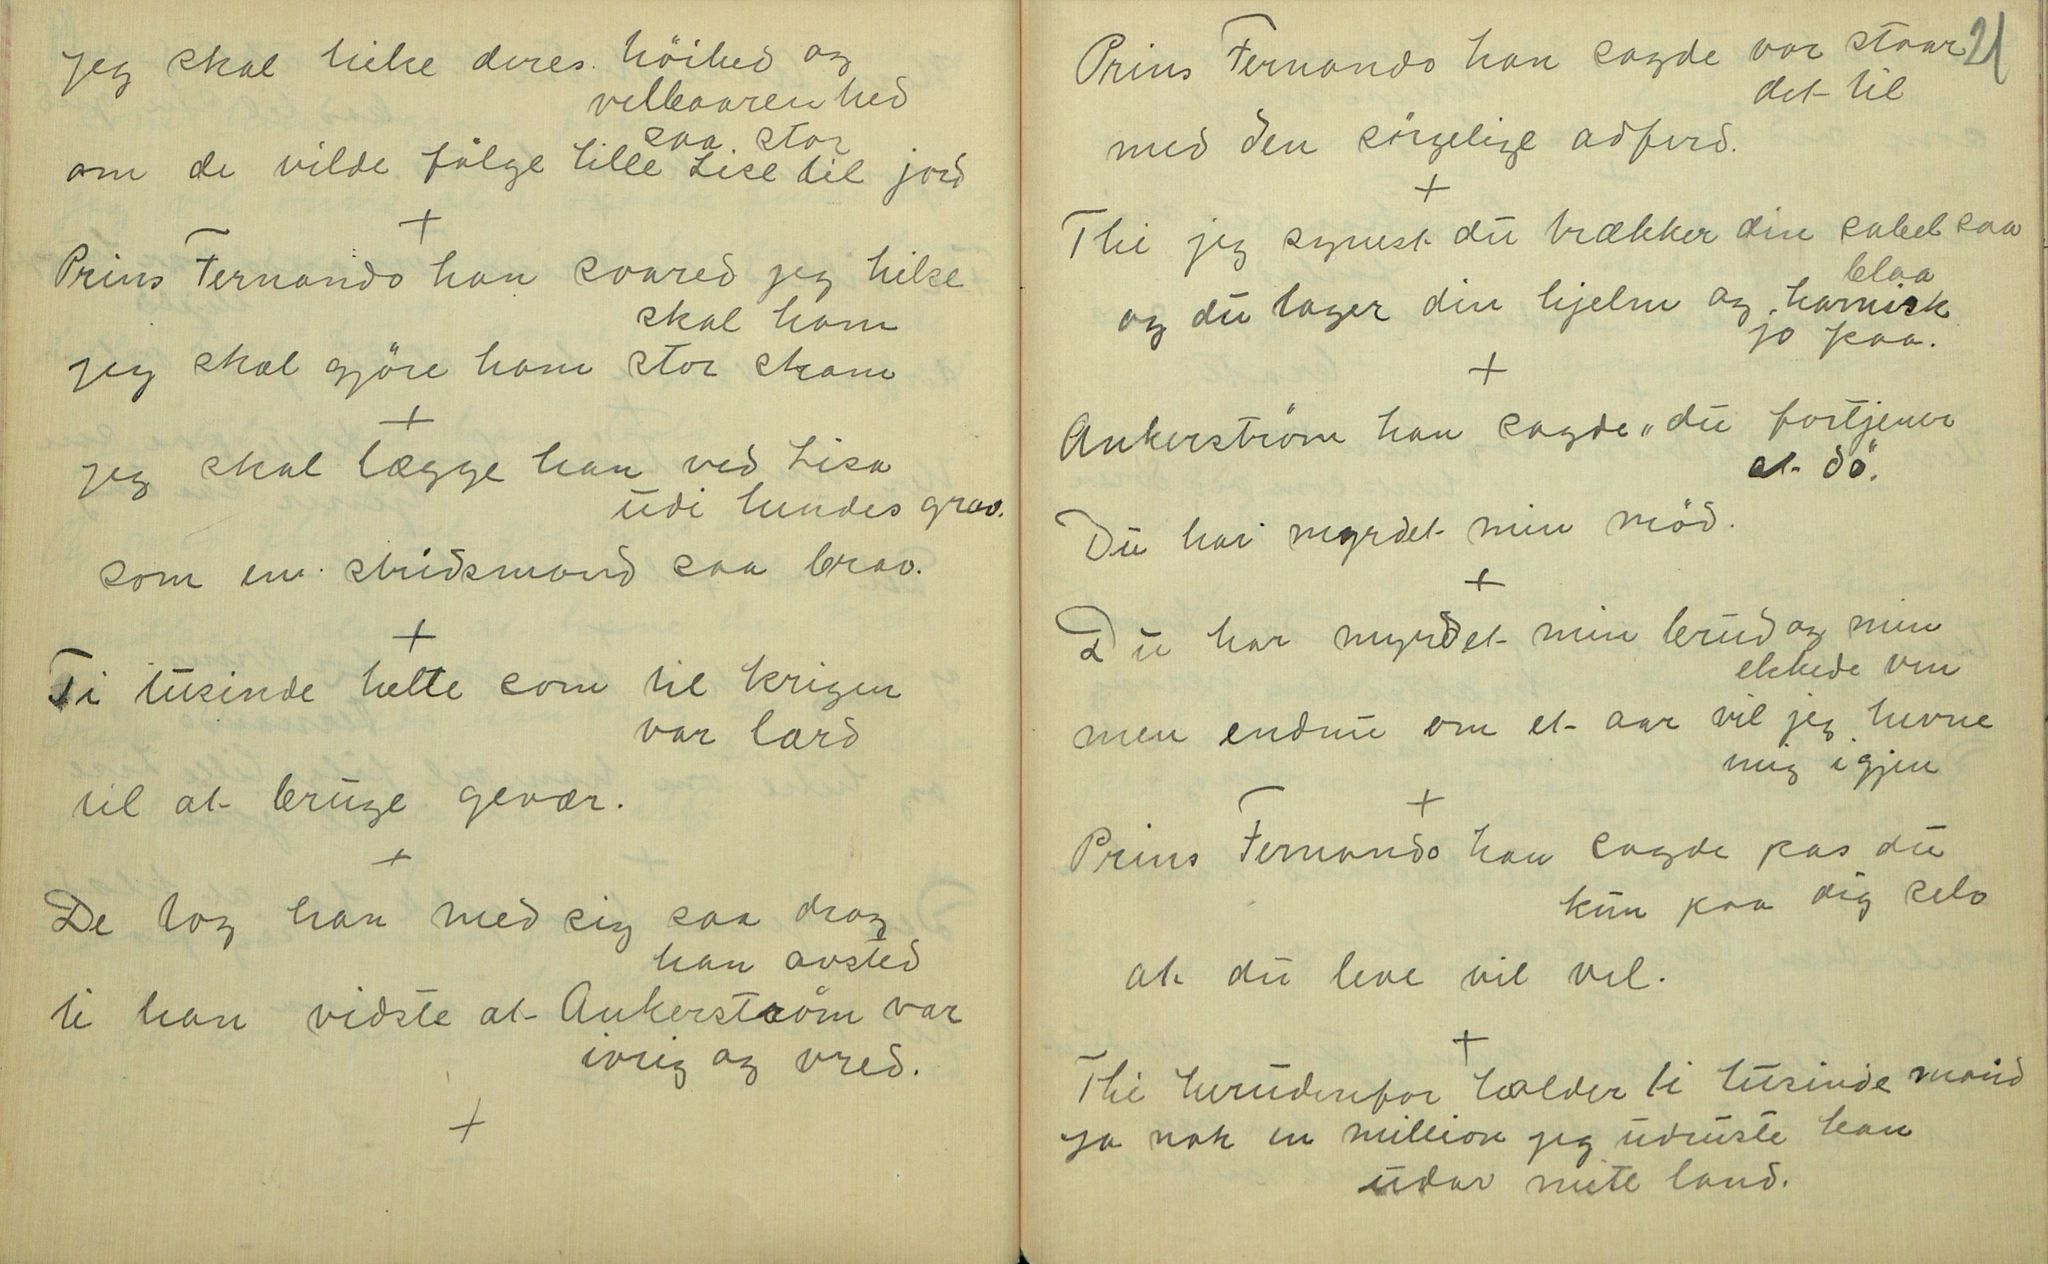 jeg skal hilse deres höihed og
velbaarenhed
saa stor
om de vilde fölge lille Lise til jord
+
Prins Fernando han svared jeg hilse
skal ham
jeg skal gjöre ham stor skam
+
jeg skal lægge han ved Lisa
udi hundes grav.
som en stridsmand saa brav.
+
Ti tusinde helte som til krigen
var lærd
til at bruge gevær.
+
De tog han med sig saa drog
han avsted
ti han vidste at Ankerström var
ivrig og vred.
+
21
Prins Fernando han sagde vor staar
det til
med den sörgelige adferd.
+
Thi jeg synest du trækker din sabel saa
blaa
og du tager din hjelm og harnisk
jo paa.
+
Ankerström han sagde „du fortjener
at dö".
Du har myrdet min möd.
+
Du har myrdet min brud og min
elskede ven
men endnu om et aar vil jeg hevne
mig igjen
+
Prins Fernando han sagde pas du
kun paa dig selv
at du leve vil vel.
+
Thi herudenfor holder ti tusinde mand
ja nok en million jeg udruste kan
udav mite land.